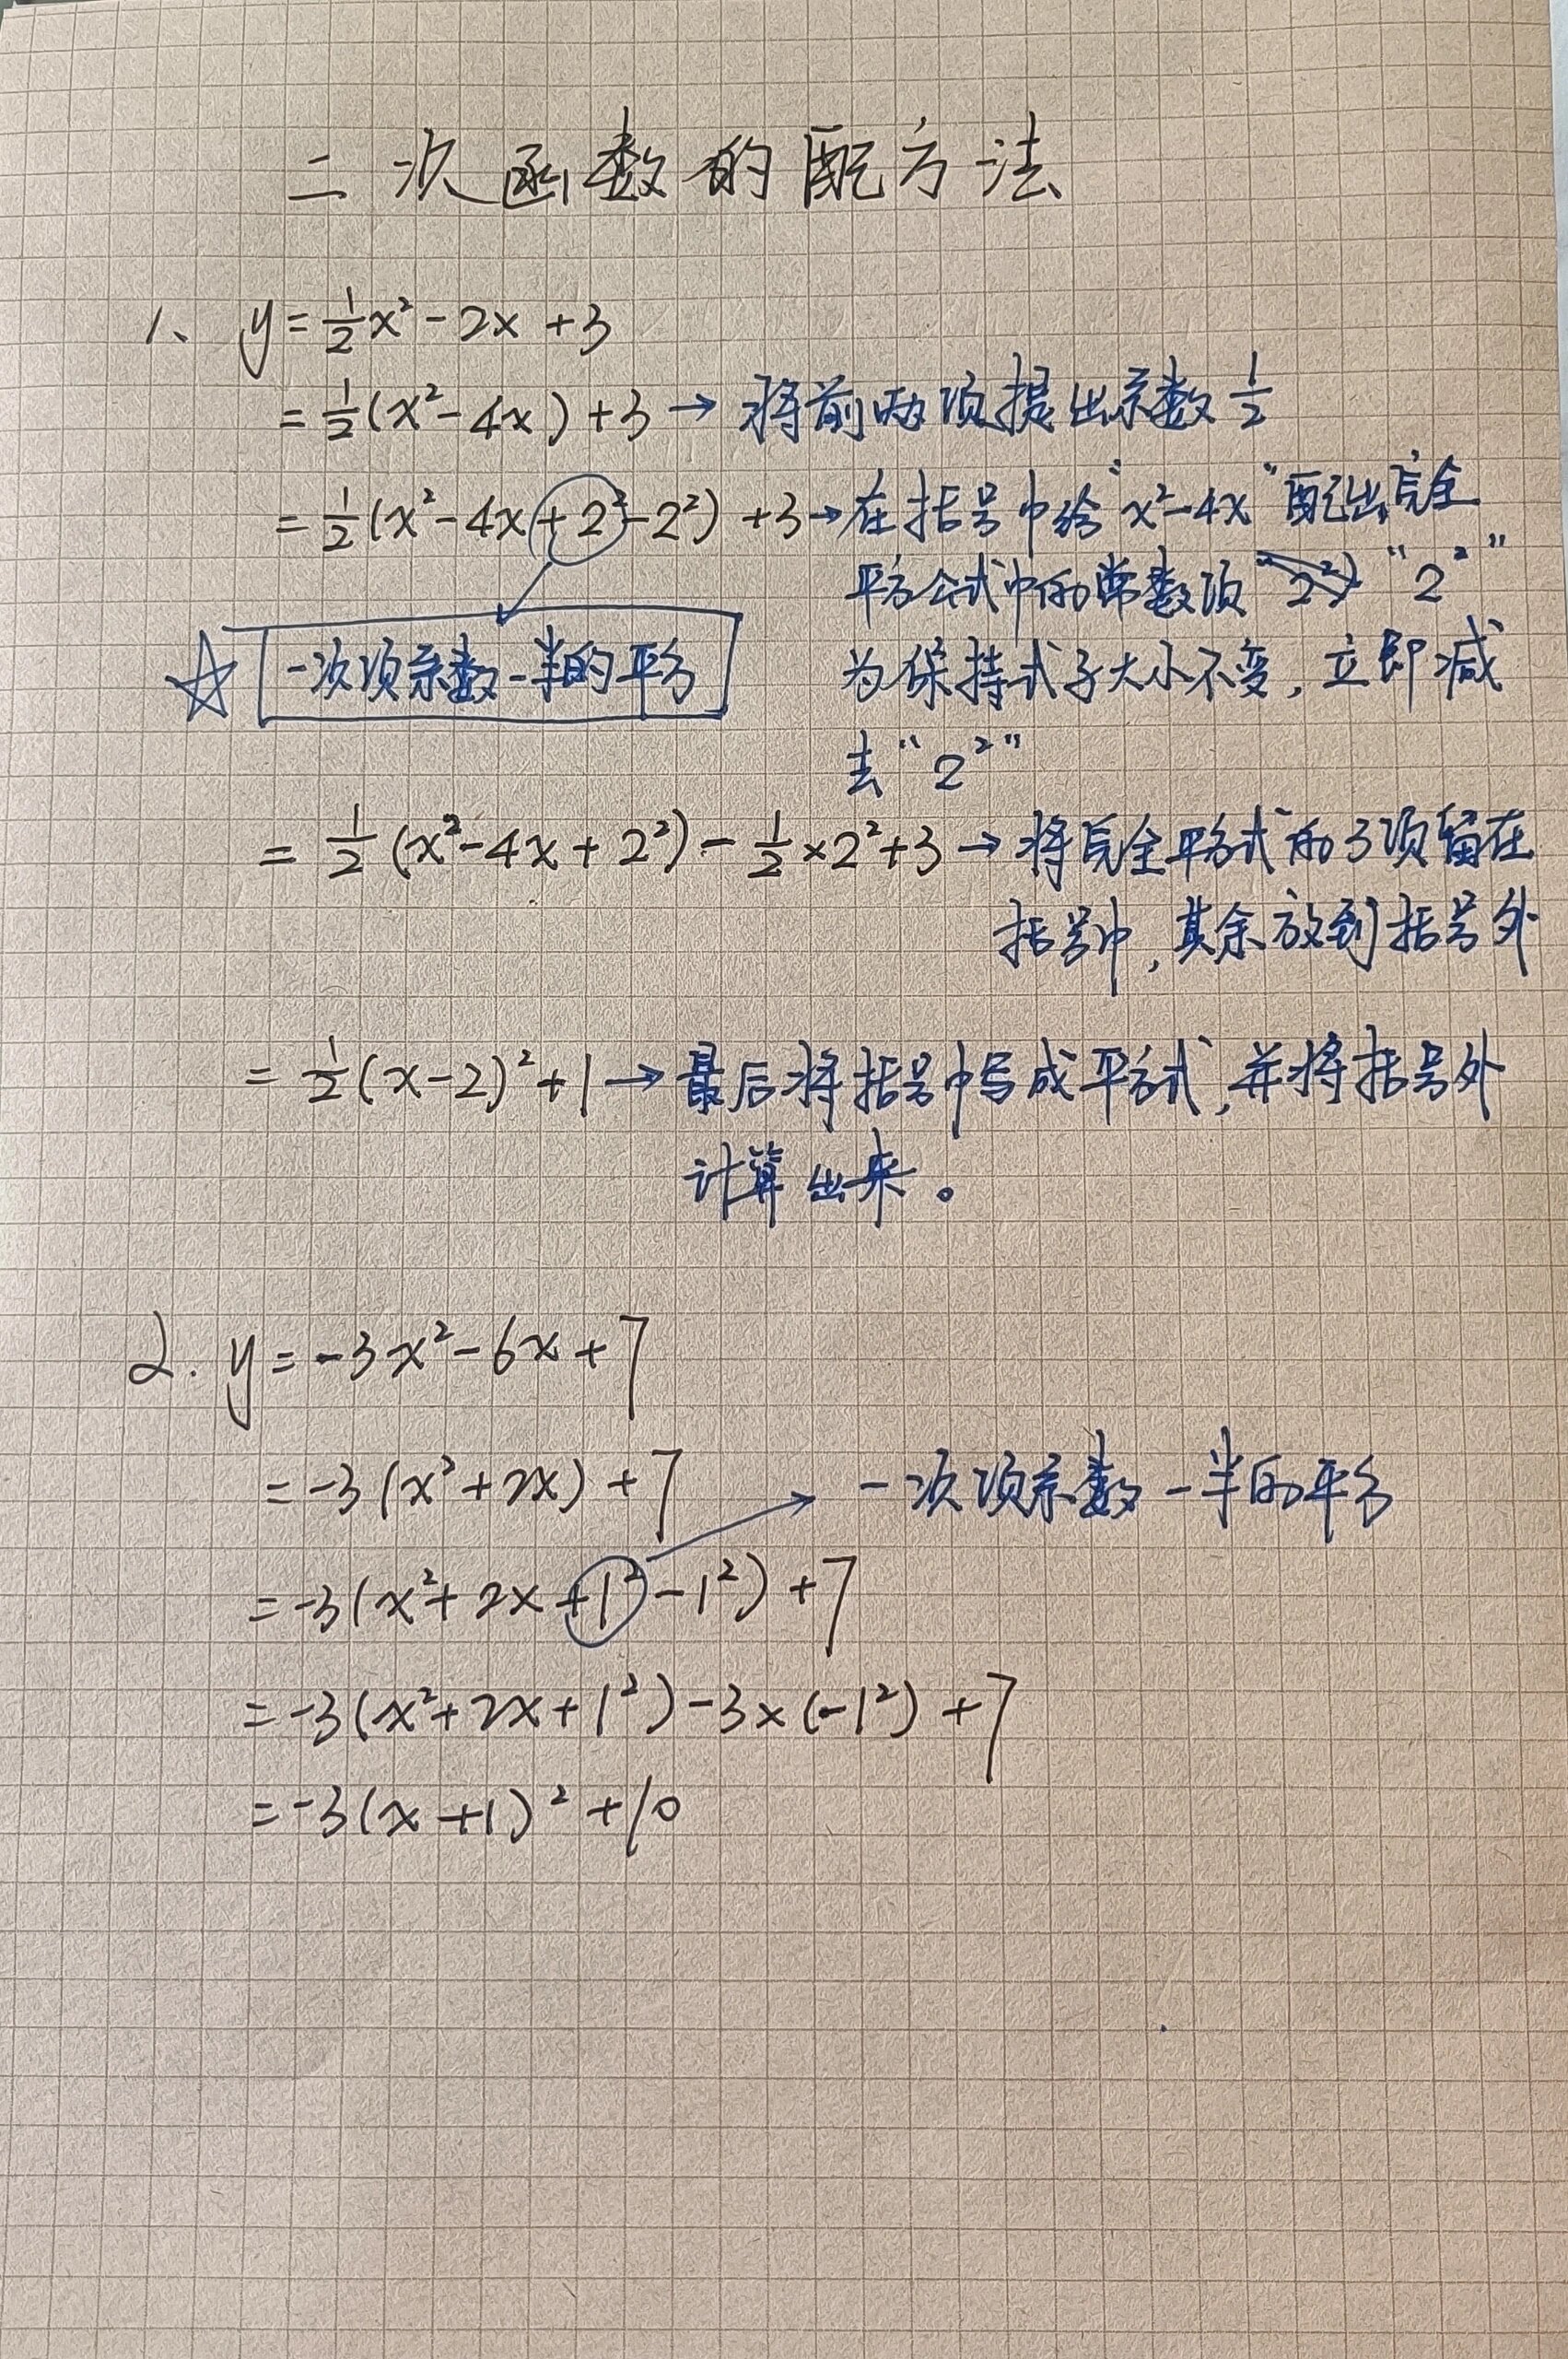 二次函数的配方法
1、 y=½x²-2x+3
=½(x²-4x)+3→将前两项提出系数½
=½(x²-4x+2²-2²)+3→在括号中给“x²-4x”配出完全
平方公式中的常数项 “2²”
☆ 一次项系数一半的平方
为保持式子大小不变,立即减
去“2²”
=½(x²-4x+2²)-½×2²+3→将完全平方式的3项留在
括号中,其余放到括号外
=½(x-2)²+1→最后将括号中写成平方式,并将括号外
计算出来。
2. y=-3x²-6x+7
=-3(x²+2x)+7
→ 一次项系数一半的平方
=-3(x²+2x+1²-1²)+7
=-3(x²+2x+1²)-3×(-1²)+7
=-3(x+1)²+10